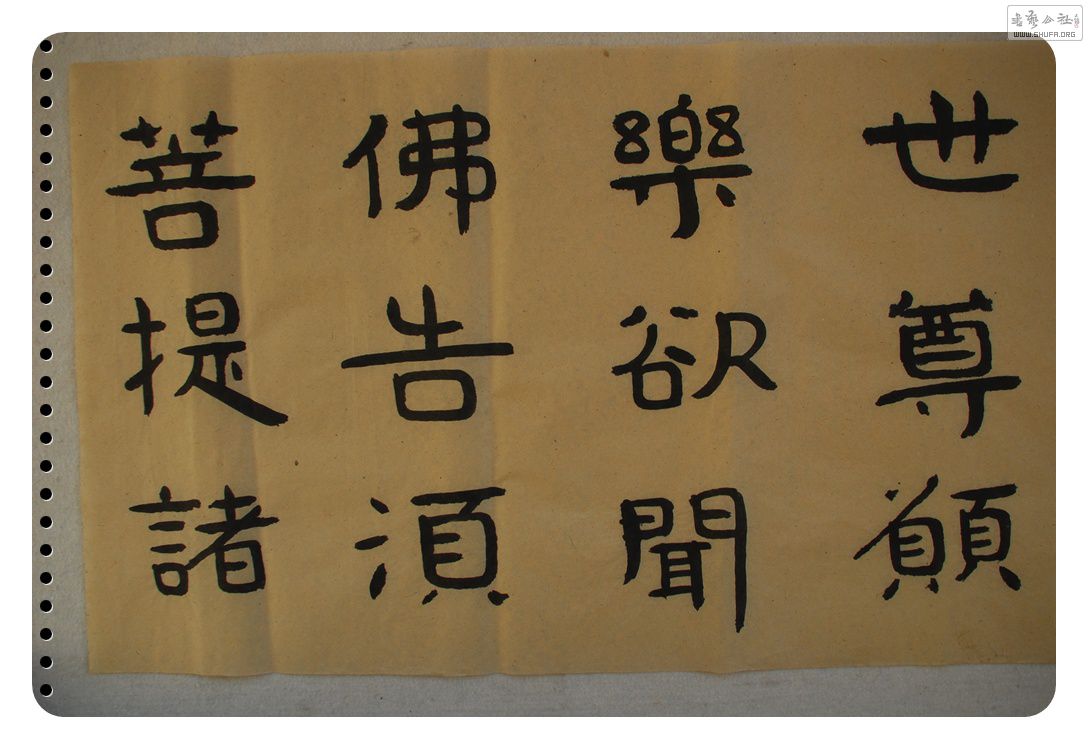 世尊願
樂欲聞
佛告湏
菩提諸
書藝公社
WWW.SHUFA.ORG